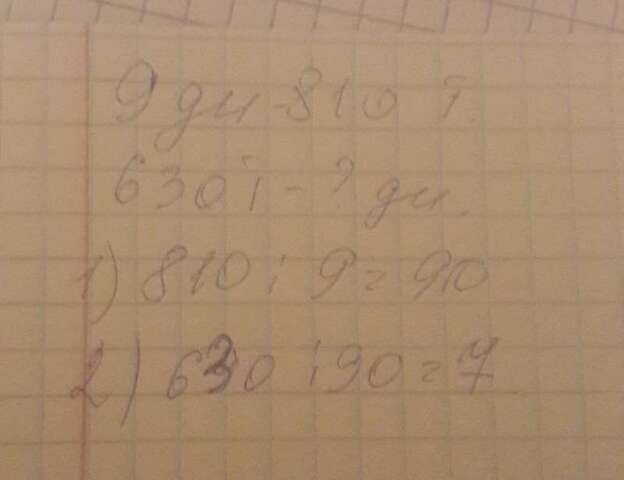 9 дн - 810 т.
630 т - ? дн.
1) 810 : 9 = 90
2) 630 : 90 = 7